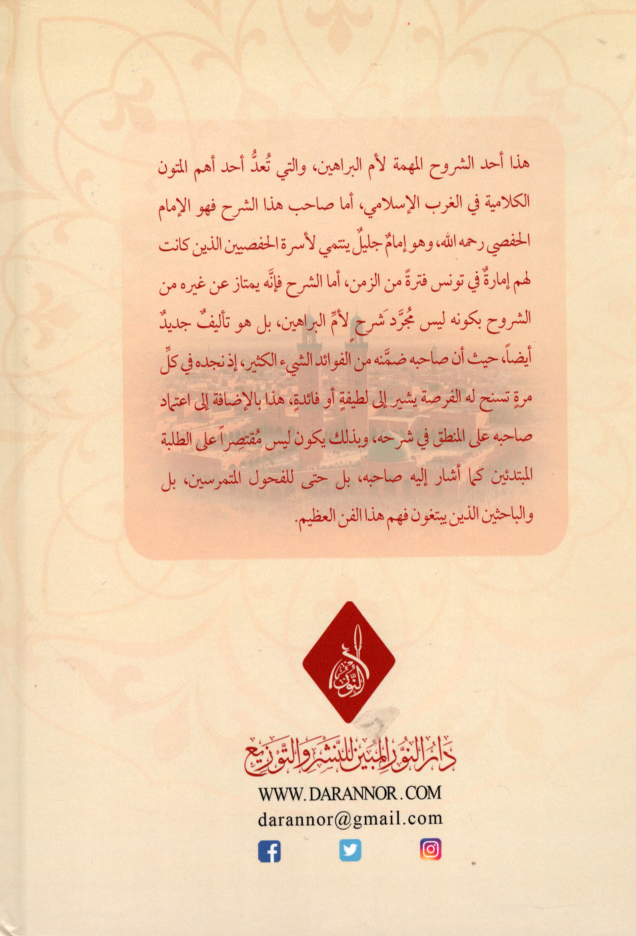 هذا أحد الشروح المهمة لأم البراهين، والتي تُعدُّ أحد أهم المتون
الكلامية في الغرب الإسلامي، أما صاحب هذا الشرح فهو الإمام
الحفصي رحمه الله، وهو إمامٌ جليلٌ ينتمي لأسرة الحفصيين الذين كانت
لهم إمارةٌ في تونس فترةً من الزمن، أما الشرح فإنَّه يمتاز عن غيره من
الشروح بكونه ليس مُجرَّد شرحٍ لأمِّ البراهين، بل هو تأليفٌ جديدٌ
أيضاً، حيث أن صاحبه ضمَّنه من الفوائد الشيء الكثير، إذ نجده في كلِّ
مرةٍ تسنح له الفرصة يشير إلى لطيفةٍ أو فائدةٍ، هذا بالإضافة إلى اعتماد
صاحبه على المنطق في شرحه، وبذلك يكون ليس مُقتصِراً على الطلبة
المبتدئين كما أشار إليه صاحبه، بل حتى للفحول المتمرسين، بل
والباحثين الذين يبتغون فهم هذا الفن العظيم.
النُّور
دَارُ النُّورِ المُبِين لِلنَّشْرِ وَالتَّوْزِيعِ
WWW.DARANNOR.COM
darannor@gmail.com